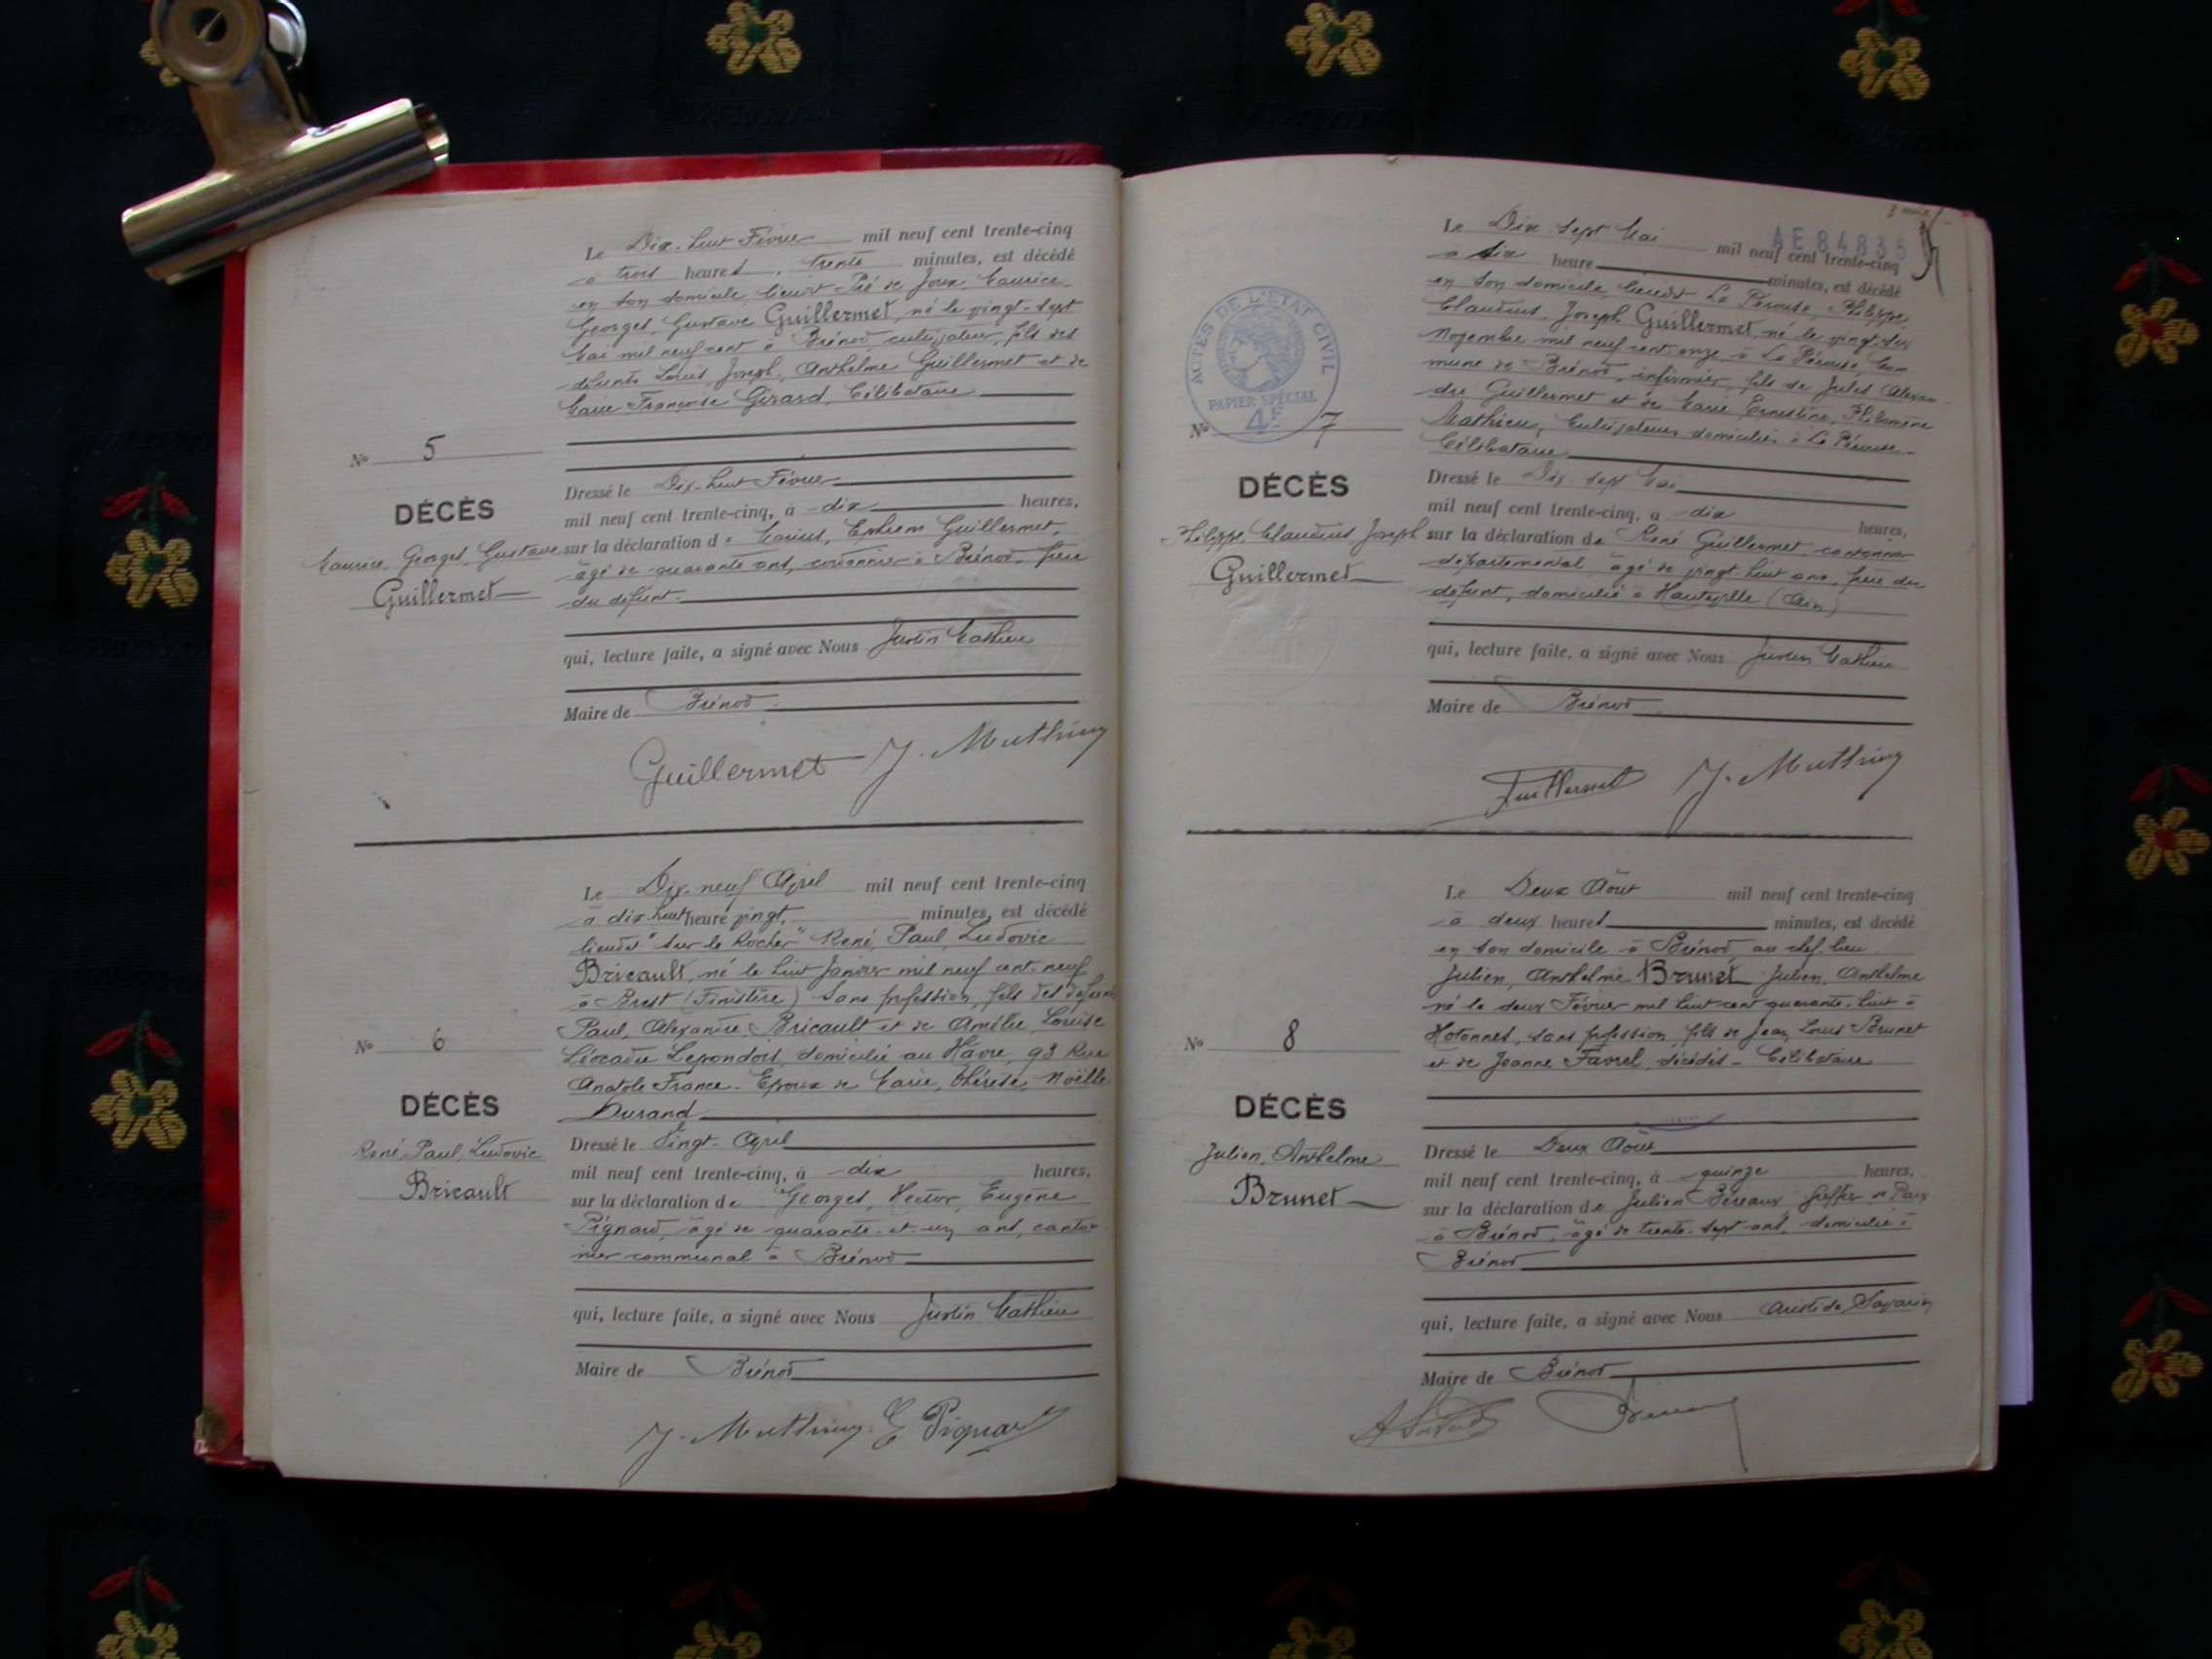 Le Dix-huit Février mil neuf cent trente-cinq
à trois heures, trente minutes, est décédé
en son domicile, lieudit Pré de Joux, Maurice,
Georges, Gustave Guillermet, né le vingt-sept
Mai mil neuf cent à Brénod, cultivateur, fils des
défunts Louis, Joseph, Anthelme Guillermet et de
Marie Françoise Girard, Célibataire
No 5
DÉCÈS
Maurice, Georges, Gustave
Guillermet
Dressé le Dix-huit Février
mil neuf cent trente-cinq, à dix heures,
sur la déclaration de Marius, Ephrem Guillermet,
âgé de quarante ans, cordonnier à Brénod, frère
du défunt.
qui, lecture faite, a signé avec Nous Justin Mathieu
Maire de Brénod.
Guillermet J. Mathieu
Le Dix-neuf Avril mil neuf cent trente-cinq
à dix huit heure vingt, minutes, est décédé
lieudit "Sur le Rocher" René, Paul, Ludovic
Bricault, né le huit Janvier mil neuf cent neuf
à Brest (Finistère) Sans profession, fils des défunts
Paul, Alexandre Bricault et de Amélie, Louise
Léocadie Levondois, domicilié au Hâvre, 93 Rue
Anatole France. Epoux de Marie, Thérèse, Noëlle
Durand
No 6
DÉCÈS
René, Paul, Ludovic
Bricault
Dressé le Vingt Avril
mil neuf cent trente-cinq, à dix heures,
sur la déclaration de Georges, Hector, Eugène
Pignard, âgé de quarante-et-un ans, canton-
nier communal à Brénod
qui, lecture faite, a signé avec Nous Justin Mathieu
Maire de Brénod
J. Mathieu E Pignard
AE 84835
Le Dix sept Mai mil neuf cent trente-cinq
à dix heure minutes, est décédé
en son domicile, lieudit La Pérouse, Philippe,
Claudius, Joseph Guillermet, né le vingt-six
Novembre mil neuf cent onze à La Pérouse, Com-
mune de Brénod, infirmier, fils de Jules Alexan-
dre Guillermet et de Marie Ernestine, Philomène
Mathieu, Cultivateurs domiciliés à La Pérouse.
Célibataire
ACTES DE L'ÉTAT CIVIL
PAPIER SPÉCIAL
4F
No 7
DÉCÈS
Philippe, Claudius, Joseph
Guillermet
Dressé le Dix sept Mai
mil neuf cent trente-cinq, à dix heures,
sur la déclaration de René Guillermet, cantonnier
départemental, âgé de vingt-huit ans, frère du
défunt, domicilié à Hauteville (Ain)
qui, lecture faite, a signé avec Nous Justin Mathieu
Maire de Brénod.
Guillermet J. Mathieu
Le Deux Août mil neuf cent trente-cinq
à deux heures minutes, est décédé
en son domicile à Brénod, au chef-lieu
Julien, Anthelme Brunet Julien, Anthelme
né le deux Février mil huit cent quarante-huit à
Hotonnes, sans profession, fils de Jean Louis Brunet
et de Jeanne Favrel, décédés - Célibataire
No 8
DÉCÈS
Julien, Anthelme
Brunet
Dressé le Deux Août
mil neuf cent trente-cinq, à quinze heures,
sur la déclaration de Julien Béreaux, Greffier de Paix
à Brénod, âgé de trente-sept ans, domicilié à
Brénod
qui, lecture faite, a signé avec Nous Aristide Savarin
Maire de Brénod